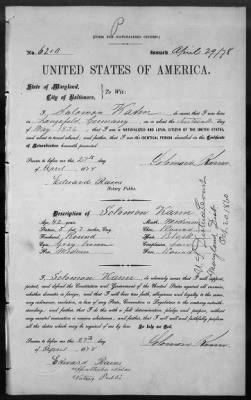 P
[FORM FOR NATURALIZED CITIZEN.]
No. 6200 Issued April 29/78
UNITED STATES OF AMERICA.
State of Maryland,
City of Baltimore, To Wit:
I, Solomon do swear that I was born
in Germany, on or about the
day of May 1836; that I am a NATURALIZED AND LOYAL CITIZEN OF THE UNITED STATES,
and about to travel abroad; and further, that I am the IDENTICAL PERSON described in the Certificate
of Naturalization herewith presented.
Sworn to before me this 27th
day of April 1878
Edward Rains
Notary Public.
Description of Solomon Kann
Age: 42 years. Mouth:
Stature: 5 feet 7 inches, Eng. Chin: Round
Forehead: Round Hair: Black
Eyes: Grey brown Complexion:
Nose: Medium Face: Round
I, Solomon Kann do solemnly swear that I will support,
protect, and defend the Constitution and Government of the United States against all enemies,
whether domestic or foreign, and that I will bear true faith, allegiance and loyalty to the same,
any ordinance, resolution, or law of any State, Convention or Legislature to the contrary notwith-
standing; and further, that I do this with a full determination, pledge and purpose, without
any mental reservation or evasion whatsoever; and further, that I will well and faithfully perform
all the duties which may be required of me by law. So help me God.
Sworn to before me this 27th
day of April 1878
Edward Rains
Notary Public